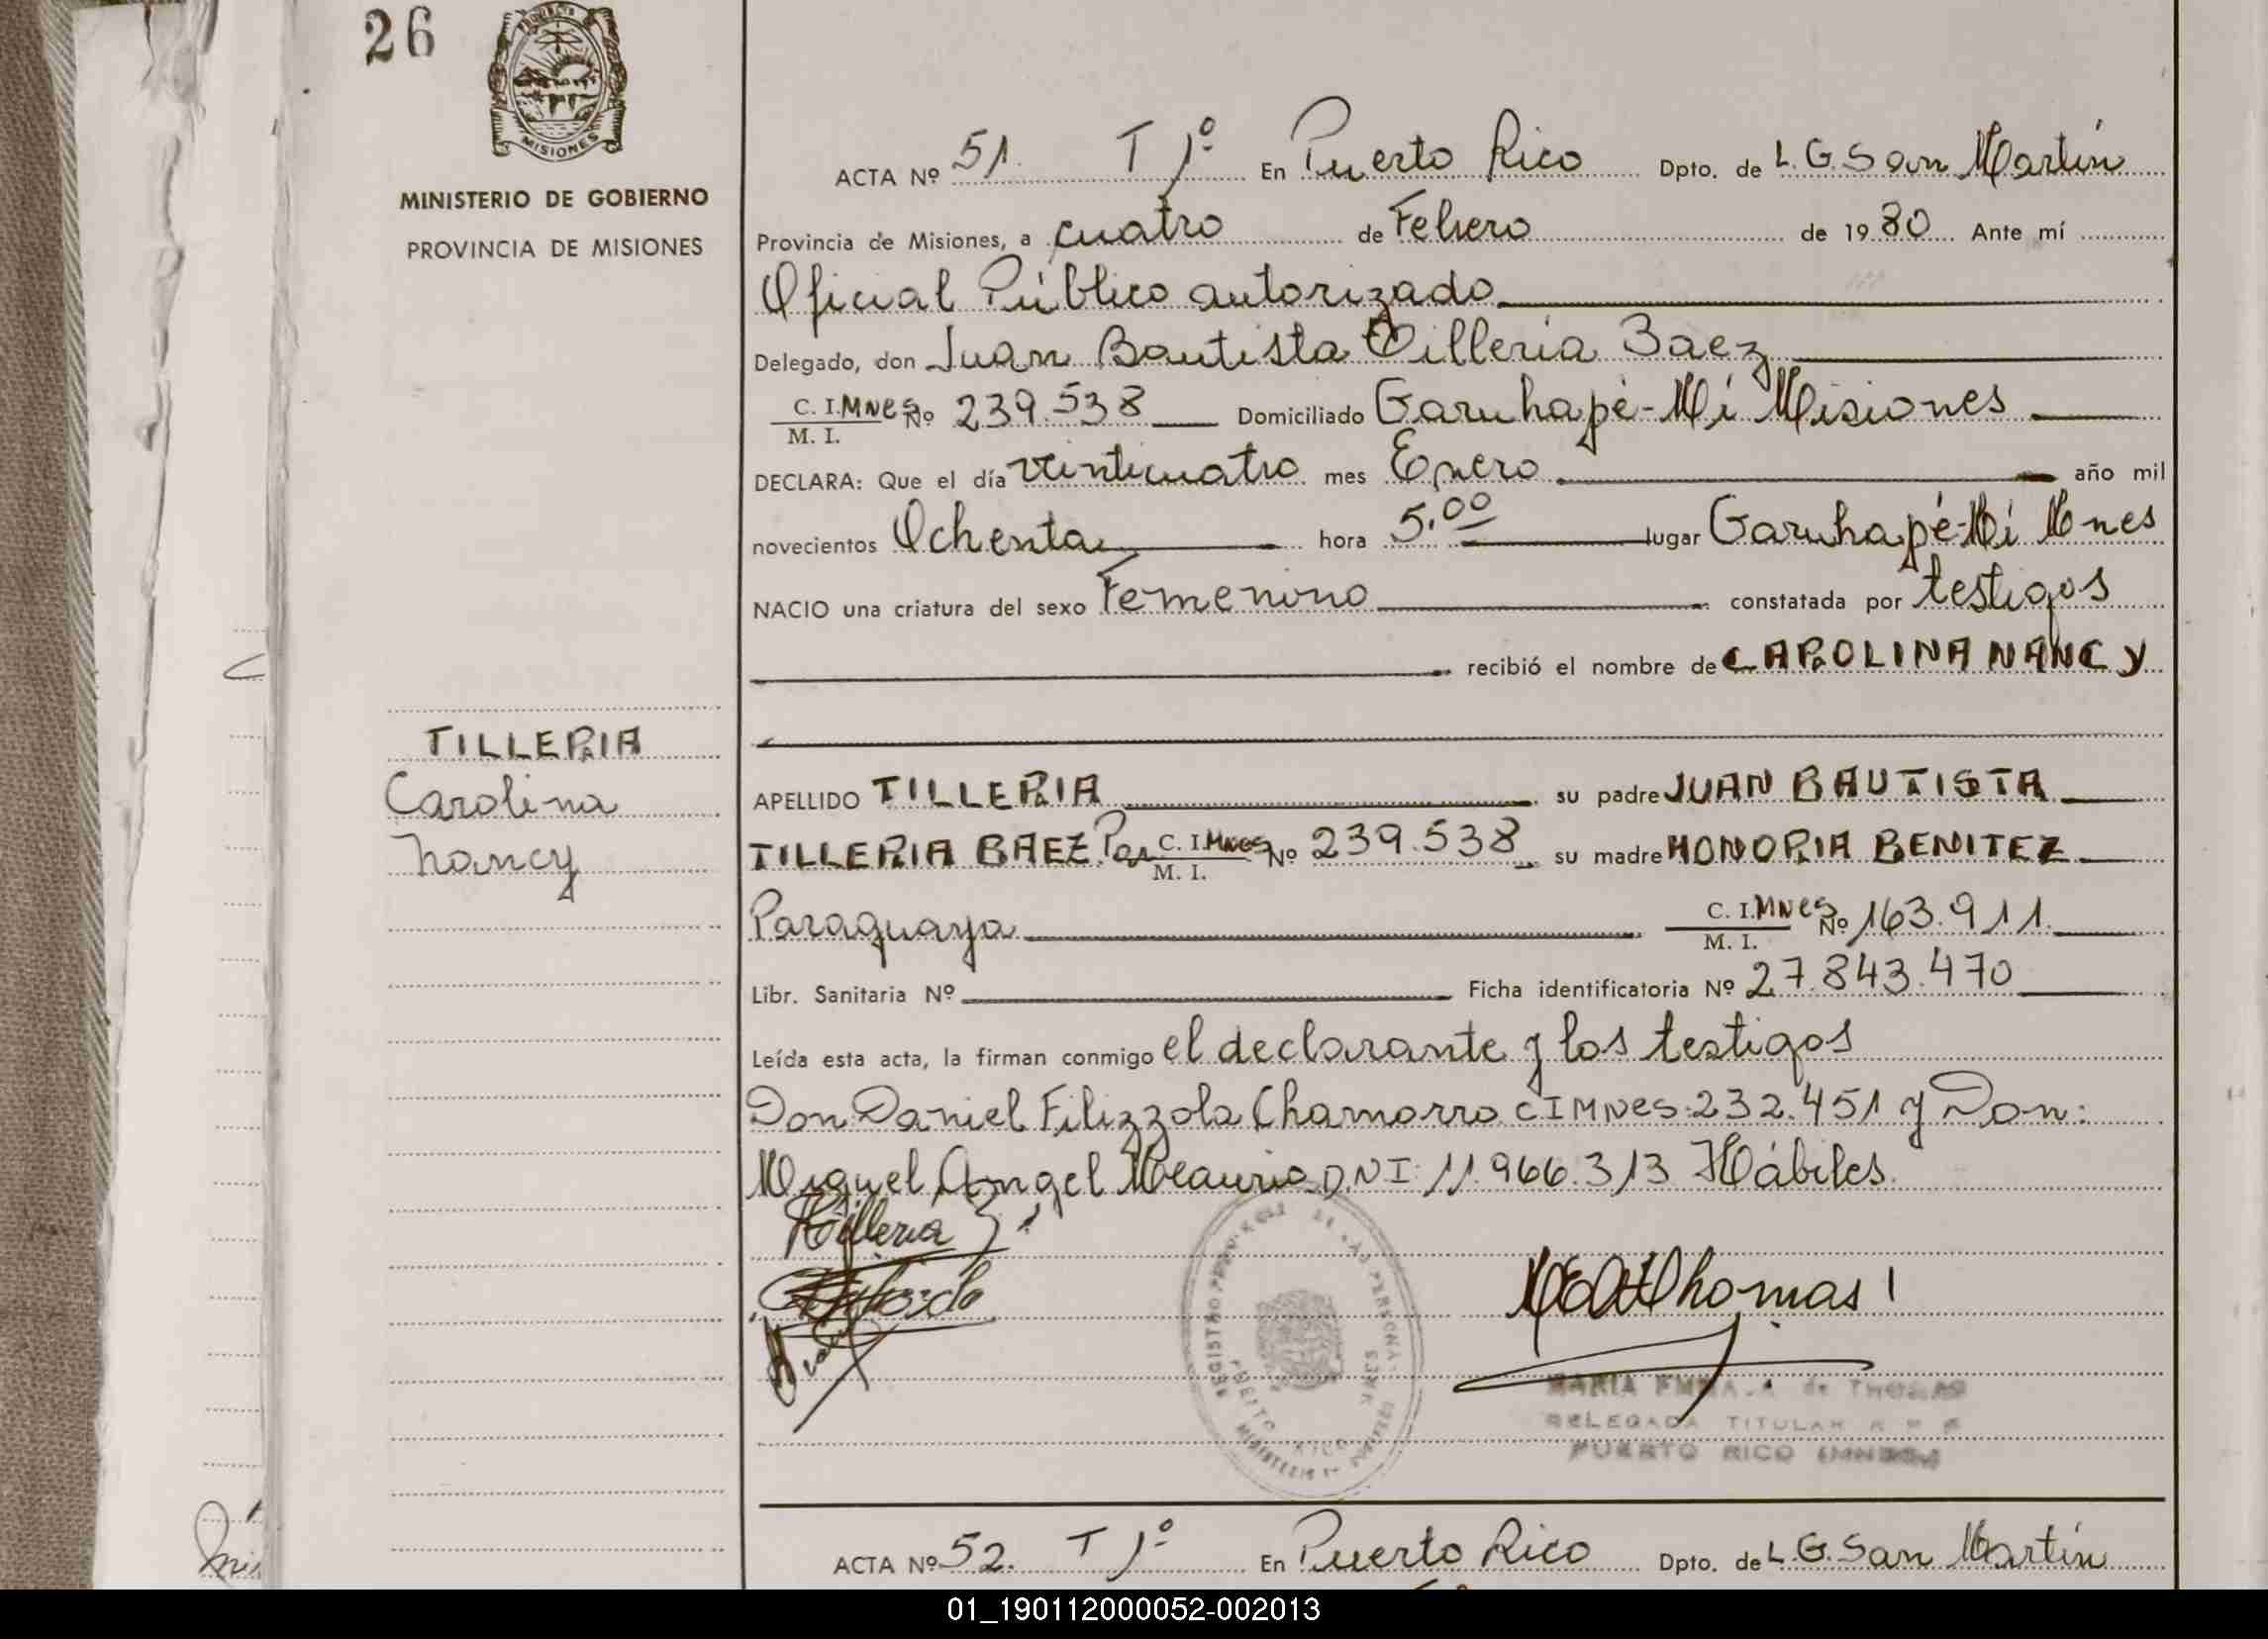 26
MISIONES
MINISTERIO DE GOBIERNO
PROVINCIA DE MISIONES
TILLERIA
Carolina
Nancy
ACTA Nº 51. T 1º En Puerto Rico Dpto. de L.G. San Martín
Provincia de Misiones, a cuatro de Febrero de 1980 Ante mí
Oficial Público autorizado
Delegado, don Juan Bautista Tilleria Baez
C. I. MNES Nº 239.538 Domiciliado Garuhapé-Mí Misiones
M. I.
DECLARA: Que el día veinticuatro mes Enero año mil
novecientos Ochenta hora 5.00 lugar Garuhapé-Mí Mnes
NACIO una criatura del sexo Femenino constatada por testigos
recibió el nombre de CAROLINA NANCY
APELLIDO TILLERIA su padre JUAN BAUTISTA
TILLERIA BAEZ Par C. I. MNES Nº 239.538 su madre HONORIA BENITEZ
M. I.
Paraguaya C. I. MNES Nº 163.911.
M. I.
Libr. Sanitaria Nº Ficha identificatoria Nº 27.843.470
Leída esta acta, la firman conmigo el declarante y los testigos
Don Daniel Filizzola Chamorro CIMNES: 232.451 y Don:
Miguel Angel Meaurio D.N.I: 11.966.313 Hábiles.
Tilleria B
Thomas
MARIA EMMA A. de THOMAS
DELEGADA TITULAR R P P
PUERTO RICO (MNES)
ACTA Nº 52. T 1º En Puerto Rico Dpto. de L.G. San Martín
01_190112000052-002013